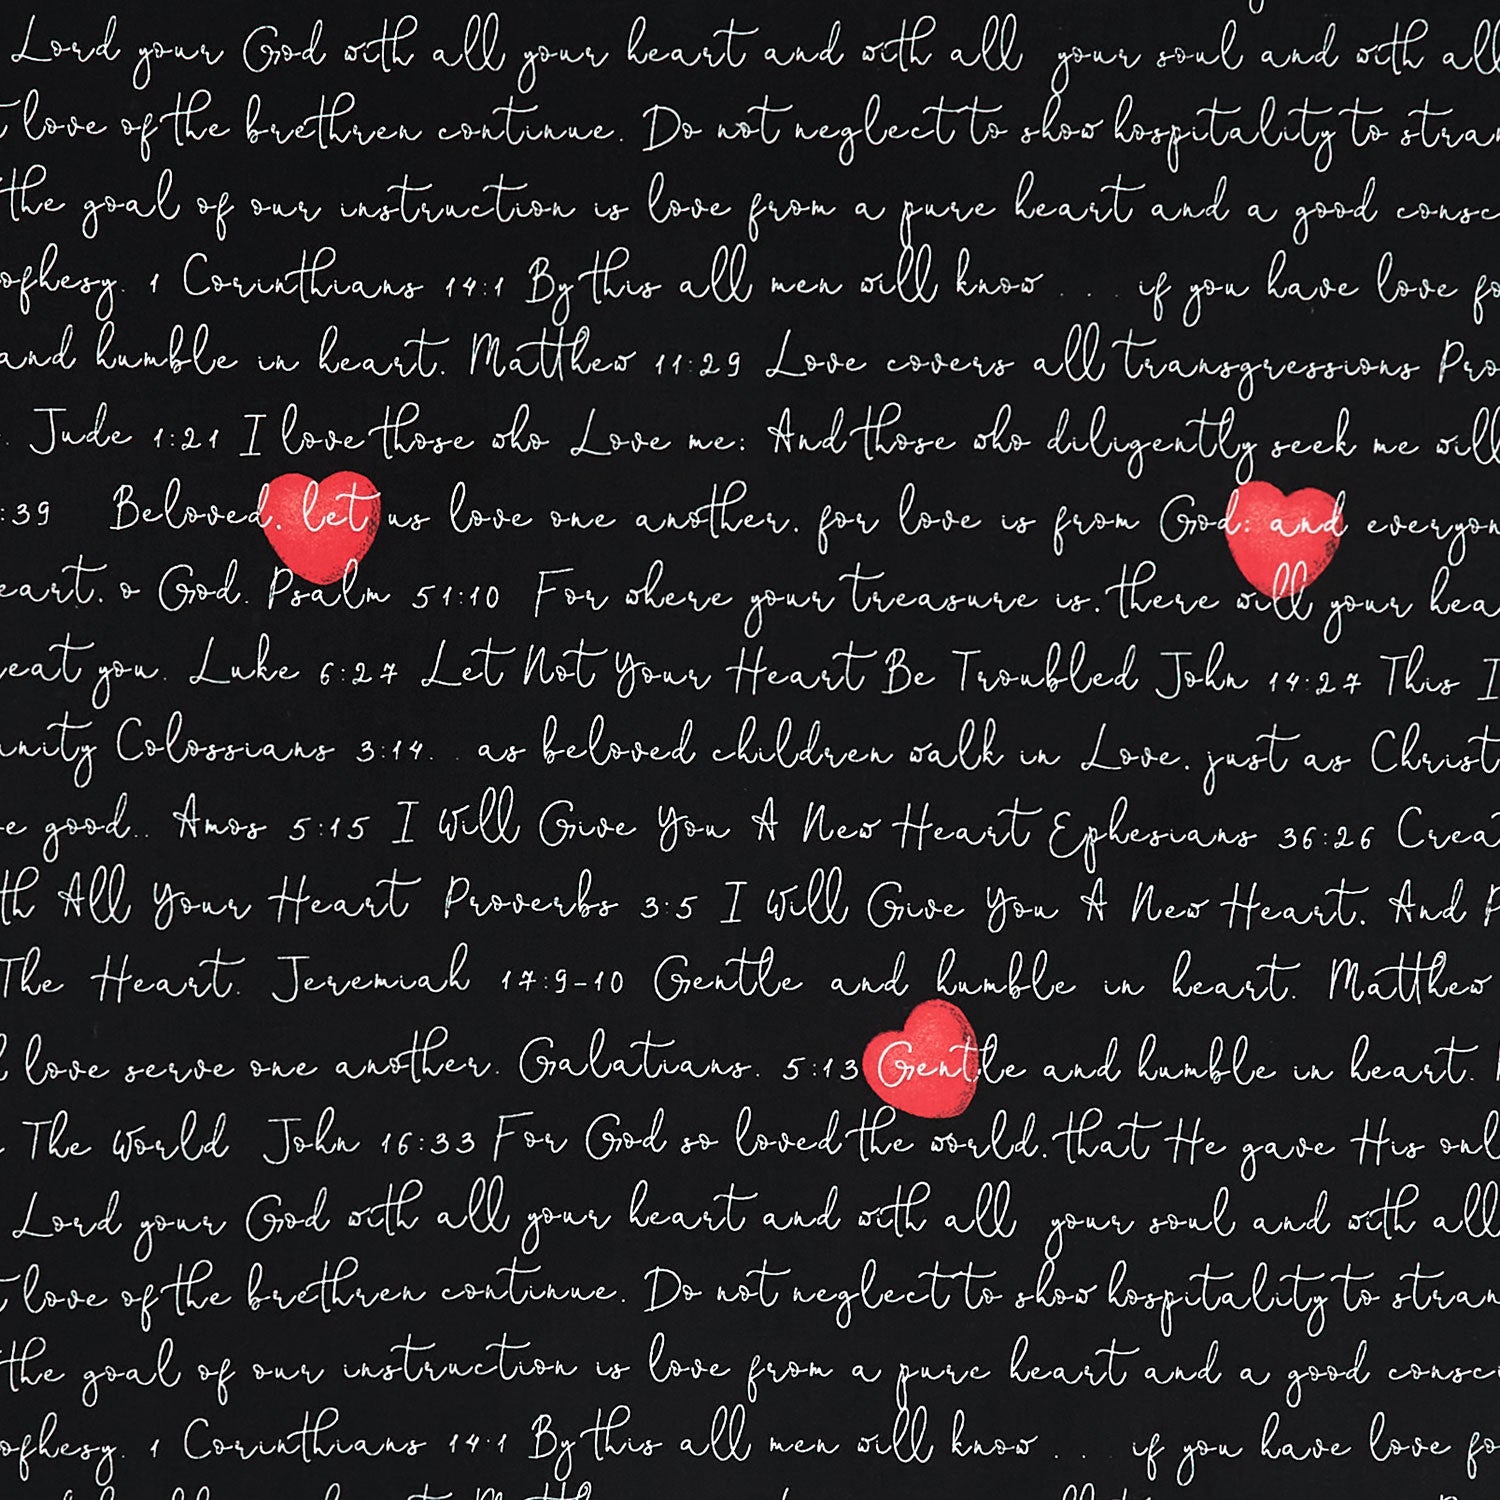 Lord your God with all your heart and with all your soul and with all
love of the brethren continue. Do not neglect to show hospitality to stran
the goal of our instruction is love from a pure heart and a good consc
ophesy. 1 Corinthians 14:1 By this all men will know . . . if you have love fo
and humble in heart. Matthew 11:29 Love covers all transgressions Pro
. Jude 1:21 I love those who Love me: And those who diligently seek me will
:39 Beloved, let us love one another, for love is from God; and everyon
eart, o God. Psalm 51:10 For where your treasure is, there will your hea
reat you. Luke 6:27 Let Not Your Heart Be Troubled John 14:27 This I
unity Colossians 3:14. . as beloved children walk in Love, just as Christ
e good.. Amos 5:15 I Will Give You A New Heart Ephesians 36:26 Creat
th All Your Heart Proverbs 3:5 I Will Give You A New Heart, And P
The Heart. Jeremiah 17:9-10 Gentle and humble in heart. Matthew
love serve one another. Galatians. 5:13 Gentle and humble in heart.
The World John 16:33 For God so loved the world, that He gave His onl
Lord your God with all your heart and with all your soul and with all
love of the brethren continue. Do not neglect to show hospitality to stran
the goal of our instruction is love from a pure heart and a good consci
ophesy. 1 Corinthians 14:1 By this all men will know . . . if you have love fo